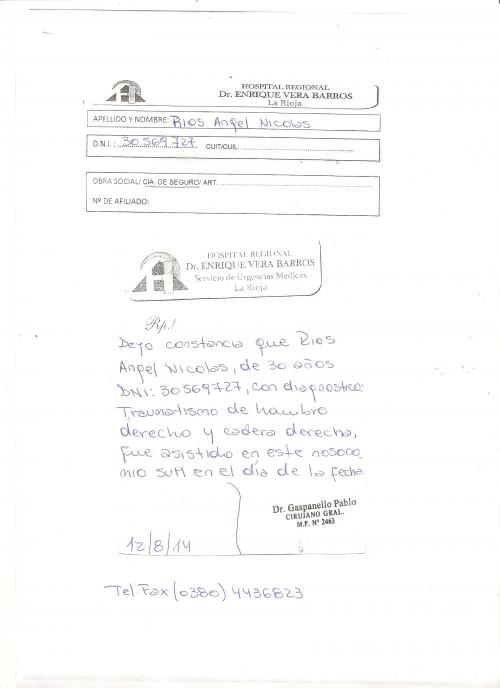 HOSPITAL REGIONAL
Dr. ENRIQUE VERA BARROS
La Rioja
APELLIDO Y NOMBRE: Rios Angel Nicolas
D.N.I.: 30569727. CUIT/CUIL:
OBRA SOCIAL/ CIA. DE SEGURO/ ART:
Nº DE AFILIADO:
HOSPITAL REGIONAL
Dr. ENRIQUE VERA BARROS
Servicio de Urgencias Medicas
La Rioja
Rp./
Dejo constancia que Rios
Angel Nicolas, de 30 años
DNI: 30569727, con diagnostico:
Traumatismo de hombro
derecho y cadera derecha,
fue asistido en este nosoco_
mio SUM en el día de la fecha
Dr. Gaspanello Pablo
CIRUJANO GRAL.
M.P. Nº 2463
12/8/14
Tel Fax (0380) 4436823